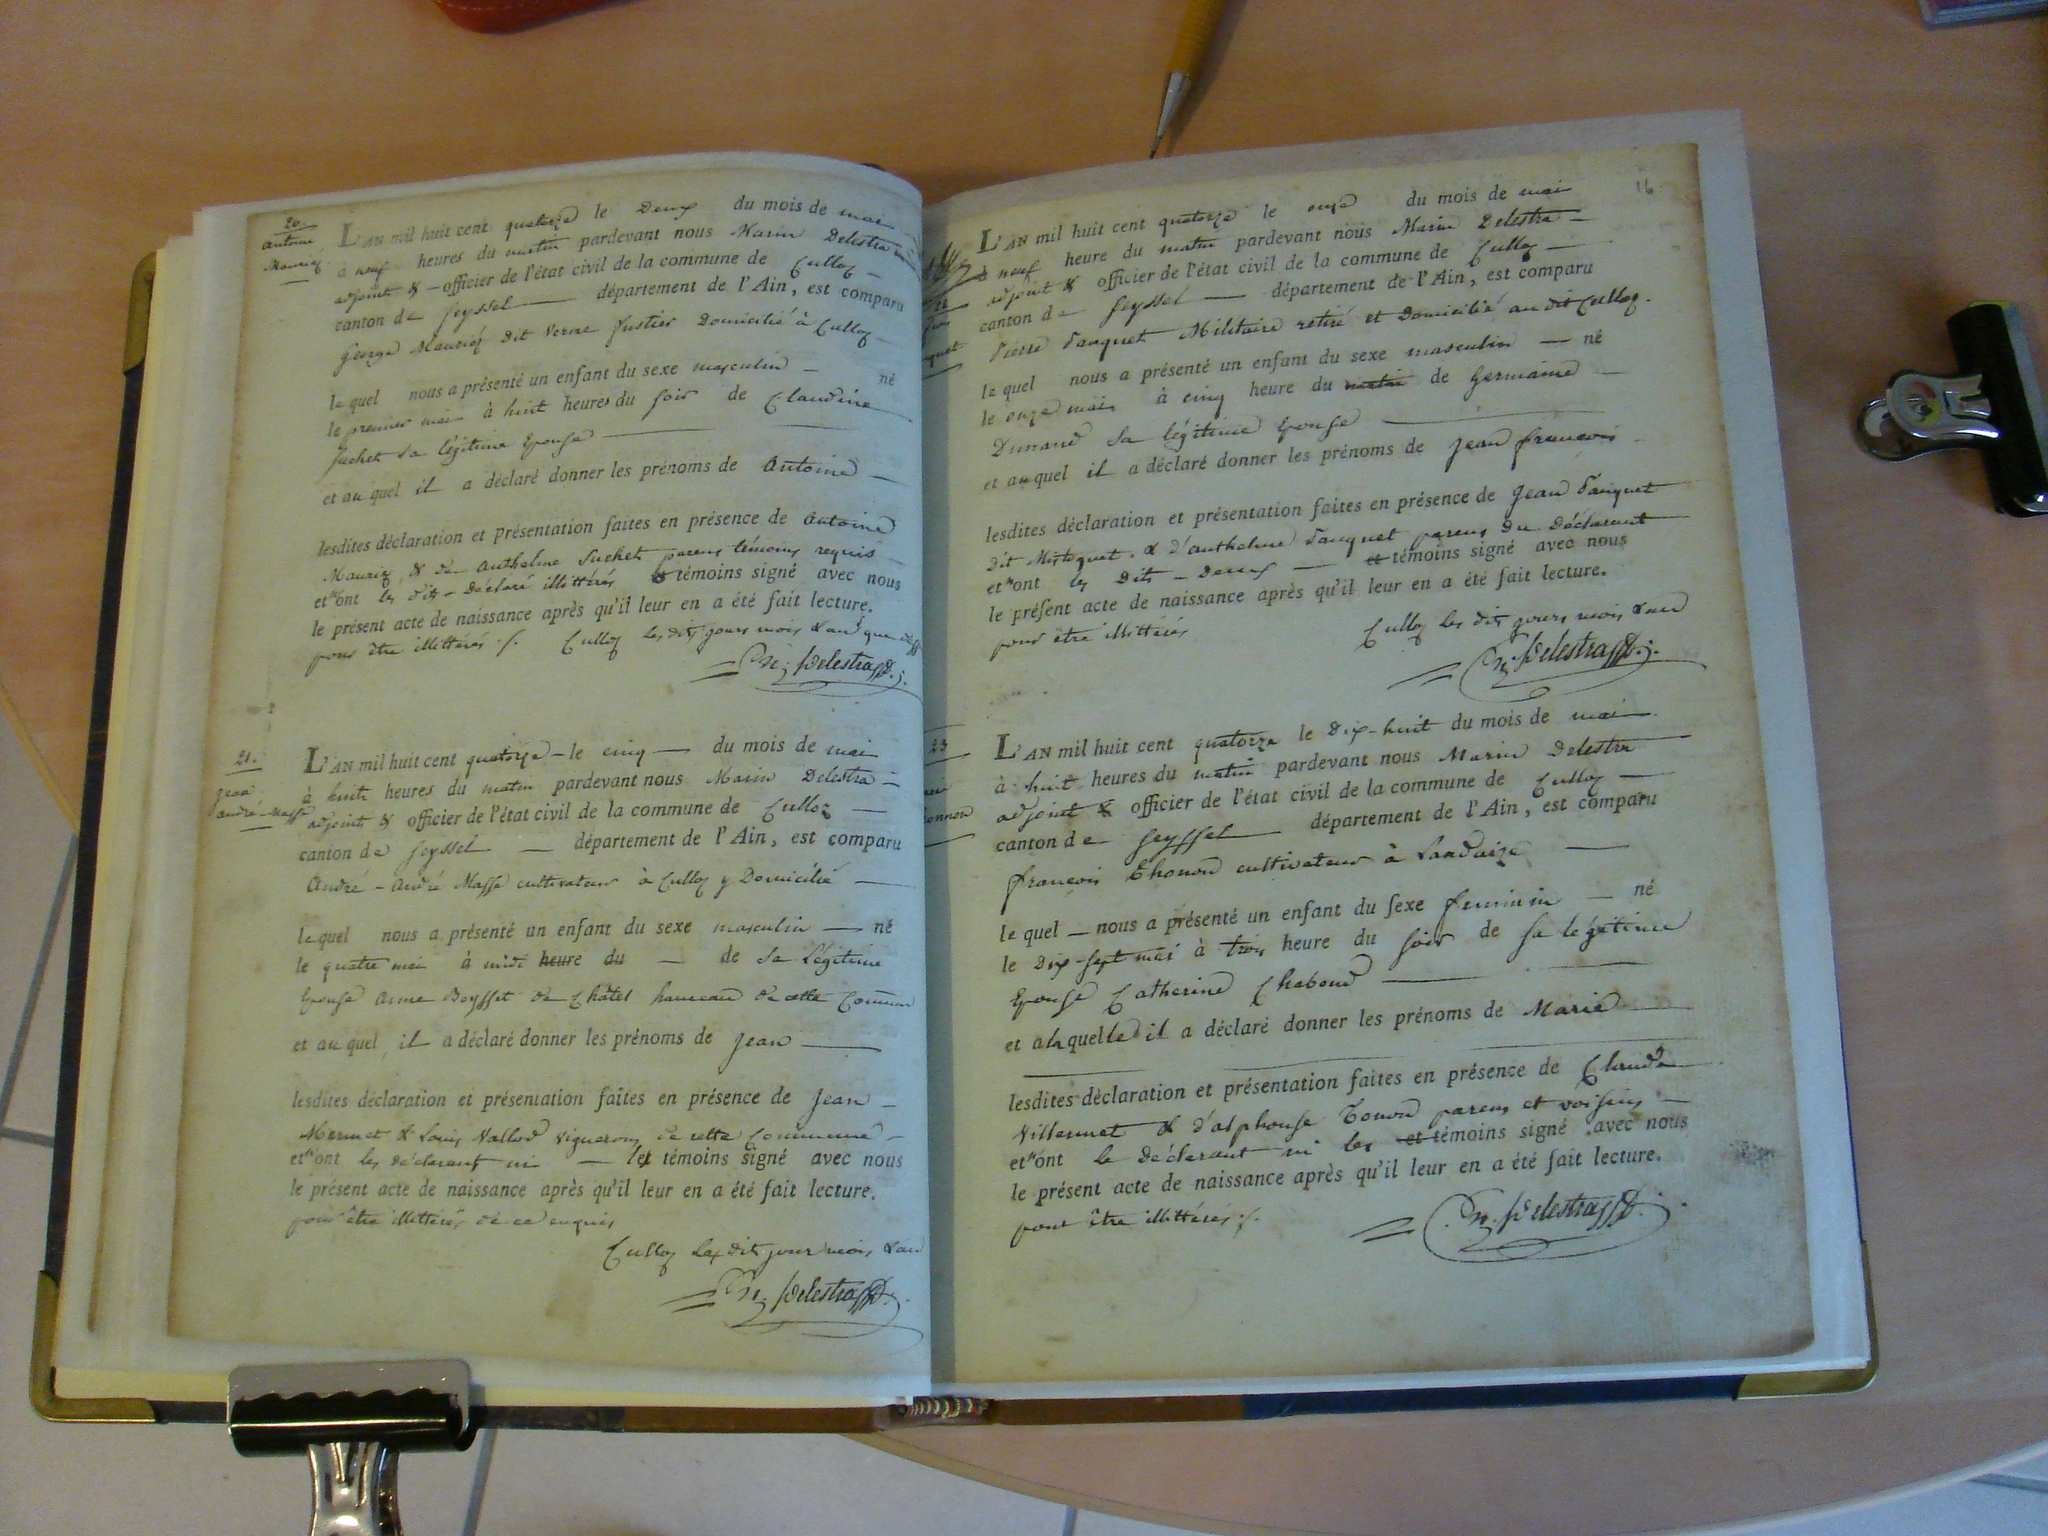 20.
antoine
Mauriz
L'AN mil huit cent quatorze le Deux du mois de mai
à neuf heures du matin pardevant nous Marin Delestra
adjoint & officier de l'état civil de la commune de Culloz
canton de Seyssel département de l'Ain, est comparu
George Mauriz dit Verne fustier Domicilié à Culloz
le quel nous a présenté un enfant du sexe masculin né
le premier mai à huit heures du soir de Claudine
Suchet sa légitime Epouse
et au quel il a déclaré donner les prénoms de Antoine
lesdites déclaration et présentation faites en présence de Antoine
Mauriz, & de Anthelme Suchet parens témoins requis
et n'ont les dits Déclaré illittérés témoins signé avec nous
le présent acte de naissance après qu'il leur en a été fait lecture.
pour être illittérés ./. Culloz les dits jours mois & an que
M. Delestra
21.
Jean
andré-Masse
L'AN mil huit cent quatorze le cinq du mois de mai
à huit heures du matin pardevant nous Marin Delestra
adjoint & officier de l'état civil de la commune de Culloz
canton de Seyssel département de l'Ain, est comparu
André-André Masse cultivateur à Culloz y Domicilié
le quel nous a présenté un enfant du sexe masculin né
le quatre mai à midi heure du de Sa Légitime
Epouse anne Beysset de Châtel hameau de cette Commune
et au quel il a déclaré donner les prénoms de Jean
lesdites déclaration et présentation faites en présence de Jean
Mermet & Louis Vallod vignerons de cette Commune
et n'ont les déclarant ni les témoins signé avec nous
le présent acte de naissance après qu'il leur en a été fait lecture.
pour être illittérés de ce enquis
Culloz les dit jour mois & an
M. Delestra
16
L'AN mil huit cent quatorze le onze du mois de mai
à neuf heure du matin pardevant nous Marin Delestra
adjoint & officier de l'état civil de la commune de Culloz
canton de Seyssel département de l'Ain, est comparu
Pierre Pauquet Militaire retiré et Domicilié au dit Culloz.
le quel nous a présenté un enfant du sexe masculin né
le onze mai à cinq heure du matin de Germaine
Durand Sa légitime Epouse
et au quel il a déclaré donner les prénoms de Jean françois
lesdites déclaration et présentation faites en présence de Jean Pauquet
dit Mistoquet, & d'anthelme Pauquet parens du Déclarant
et n'ont les dits Deux et témoins signé avec nous
le présent acte de naissance après qu'il leur en a été fait lecture.
pour être illittérés Culloz les dits jours mois & an
M. Delestra
23
L'AN mil huit cent quatorze le Dix-huit du mois de mai
à huit heures du matin pardevant nous Marin Delestra
adjoint & officier de l'état civil de la commune de Culloz
canton de Seyssel département de l'Ain, est comparu
françois Thonon cultivateur à Landaize
le quel nous a présenté un enfant du sexe feminin né
le Dix-sept mai à trois heure du soir de sa légitime
Epouse Catherine Chaboud
et à la quelle il a déclaré donner les prénoms de Marie
lesdites déclaration et présentation faites en présence de Claude
Villermet & d'alphonse Tonon parens et voisins
et n'ont le déclarant ni les et témoins signé avec nous
le présent acte de naissance après qu'il leur en a été fait lecture.
pour être illittérés ./.
M. Delestra